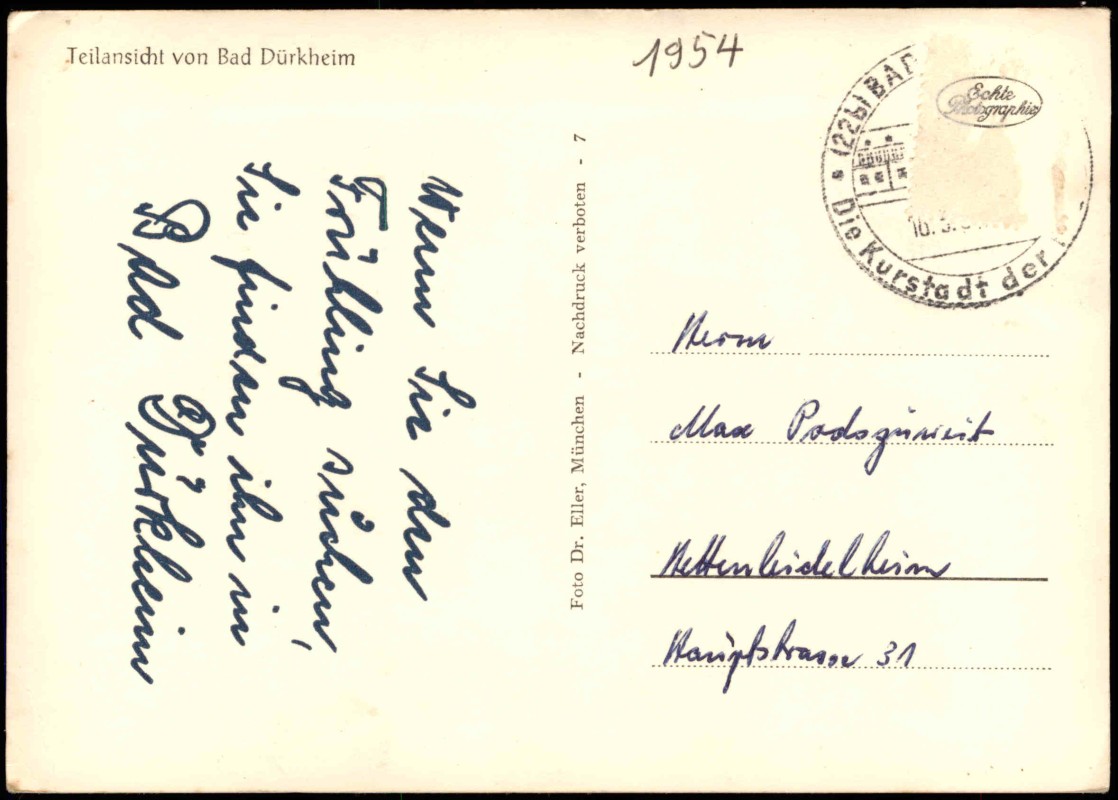 Teilansicht von Bad Dürkheim
1954
(22b) BAD
Die Kurstadt der
Echte
Photographie
Wenn Sie den
Frühling suchen,
Sie finden ihn in
Bad Dürkheim
Foto Dr. Eller, München - Nachdruck verboten - 7
Herrn
Max Podszuweit
Hettenleidelheim
Hauptstrasse 31